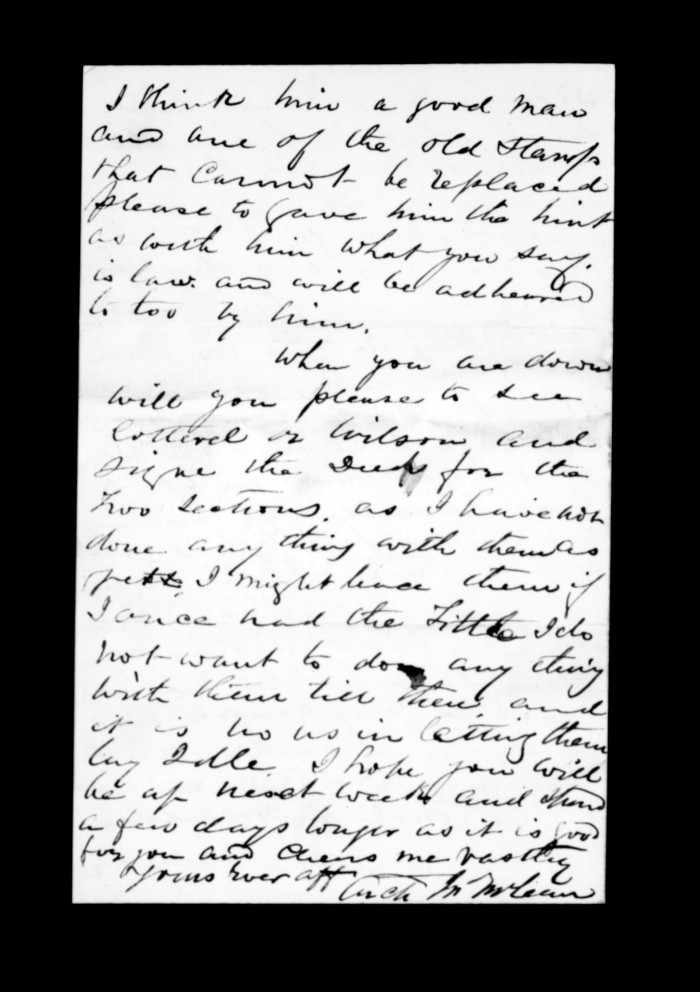 I think him a good man
and one of the old Stamp
that Cannot be replaced
please to gave him the hint
as with him what you say
is law. and will be adheared
to too by him.
When you are down
will you please to see
Cotterel or Wilson and
signe the Deeds for the
two sections, as I have not
done any thing with them as
yett, I might leace them if
I once had the Tittle I do
not want to do any thing
with them till then, and
it is no us in letting them
lay Idle. I hope you will
be up next week and spend
a few days longer as it is good
for you and cheers me vastley
Yours ever aff
Arch Mc McLean